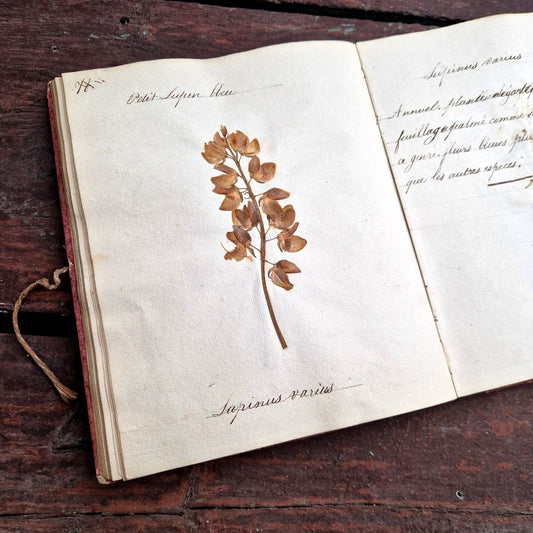 Petit Lupen bleu
Lupinus varius
Lupinus varius
Annuel, plante élégante
feuillage palmé comme
ce genre fleurs bleues plus
que les autres espèces.